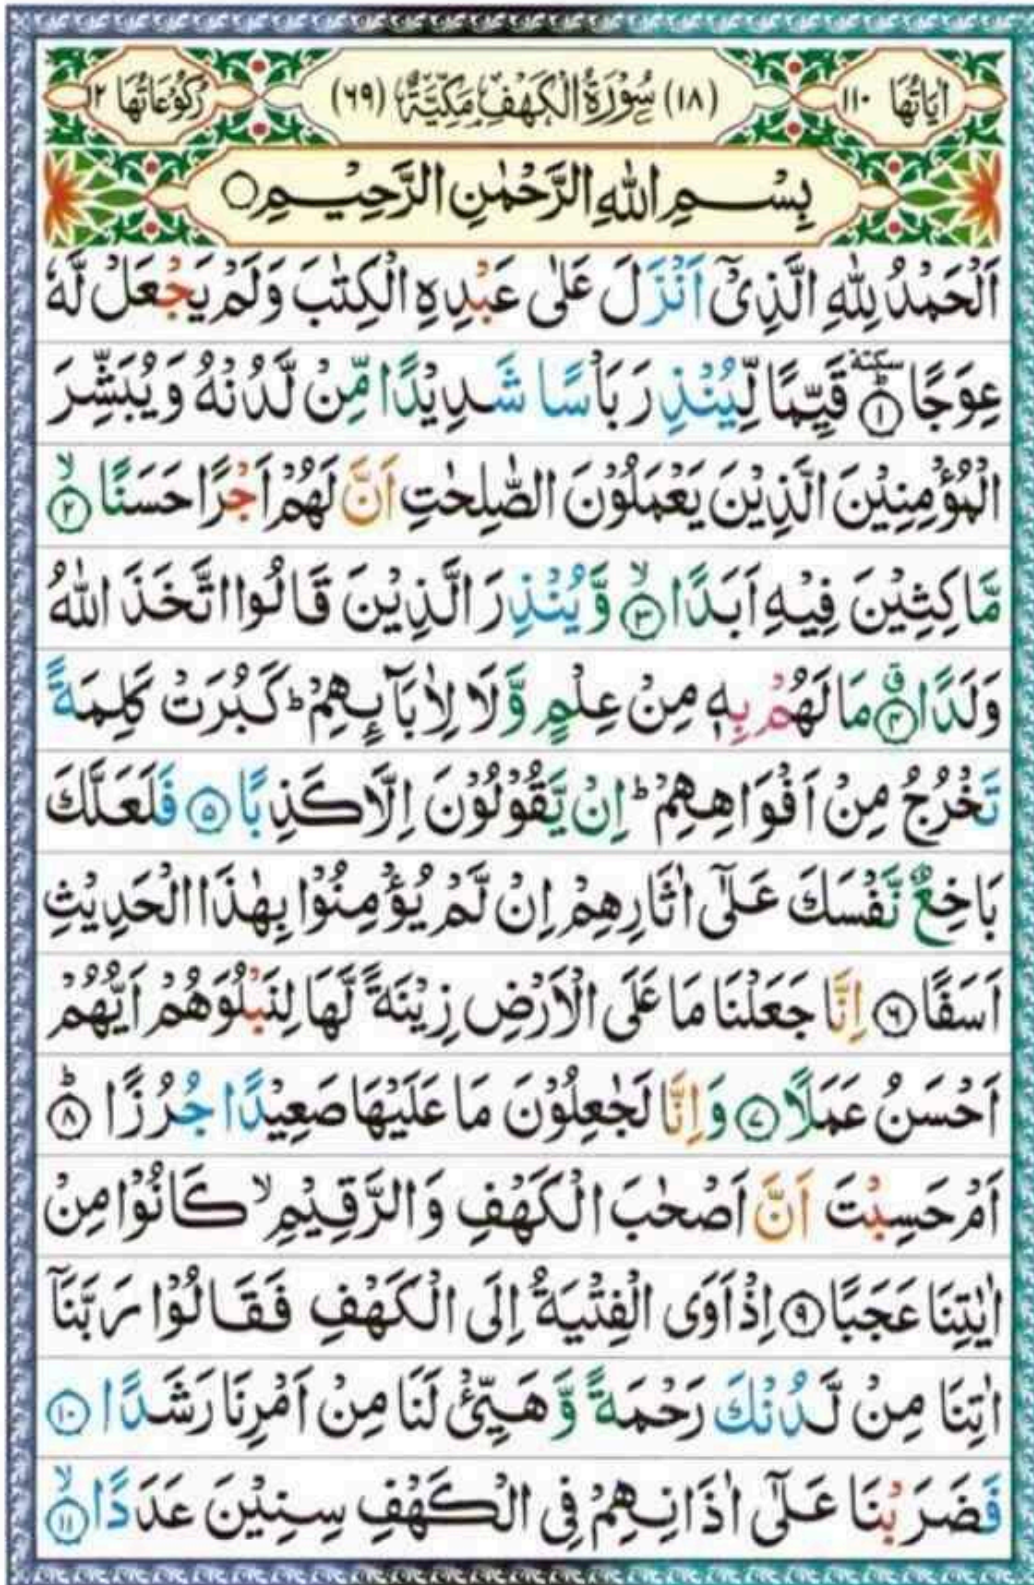 اٰيَاتُهَا ١١٠ (١٨) سُوْرَةُ الْكَهْفِ مَكِّيَّةٌ (٦٩) رُكُوْعَاتُهَا ١٢
بِسْمِ اللهِ الرَّحْمٰنِ الرَّحِيْمِ ○
اَلْحَمْدُ لِلّٰهِ الَّذِيْٓ اَنْزَلَ عَلٰى عَبْدِهِ الْكِتٰبَ وَلَمْ يَجْعَلْ لَّهٗ
عِوَجًا ۜ ١ قَيِّمًا لِّيُنْذِرَ بَاْسًا شَدِيْدًا مِّنْ لَّدُنْهُ وَيُبَشِّرَ
الْمُؤْمِنِيْنَ الَّذِيْنَ يَعْمَلُوْنَ الصّٰلِحٰتِ اَنَّ لَهُمْ اَجْرًا حَسَنًا ۙ ٢
مَّاكِثِيْنَ فِيْهِ اَبَدًا ۙ ٣ وَّيُنْذِرَ الَّذِيْنَ قَالُوا اتَّخَذَ اللهُ
وَلَدًا ۗ ٤ مَا لَهُمْ بِهٖ مِنْ عِلْمٍ وَّلَا لِاٰبَآئِهِمْ ؕ كَبُرَتْ كَلِمَةً
تَخْرُجُ مِنْ اَفْوَاهِهِمْ ؕ اِنْ يَّقُوْلُوْنَ اِلَّا كَذِبًا ٥ فَلَعَلَّكَ
بَاخِعٌ نَّفْسَكَ عَلٰٓى اٰثَارِهِمْ اِنْ لَّمْ يُؤْمِنُوْا بِهٰذَا الْحَدِيْثِ
اَسَفًا ٦ اِنَّا جَعَلْنَا مَا عَلَى الْاَرْضِ زِيْنَةً لَّهَا لِنَبْلُوَهُمْ اَيُّهُمْ
اَحْسَنُ عَمَلًا ٧ وَاِنَّا لَجٰعِلُوْنَ مَا عَلَيْهَا صَعِيْدًا جُرُزًا ؕ ٨
اَمْ حَسِبْتَ اَنَّ اَصْحٰبَ الْكَهْفِ وَالرَّقِيْمِ ۙ كَانُوْا مِنْ
اٰيٰتِنَا عَجَبًا ٩ اِذْ اَوَى الْفِتْيَةُ اِلَى الْكَهْفِ فَقَالُوْا رَبَّنَآ
اٰتِنَا مِنْ لَّدُنْكَ رَحْمَةً وَّهَيِّئْ لَنَا مِنْ اَمْرِنَا رَشَدًا ١٠
فَضَرَبْنَا عَلٰٓى اٰذَانِهِمْ فِى الْكَهْفِ سِنِيْنَ عَدَدًا ۙ ١١